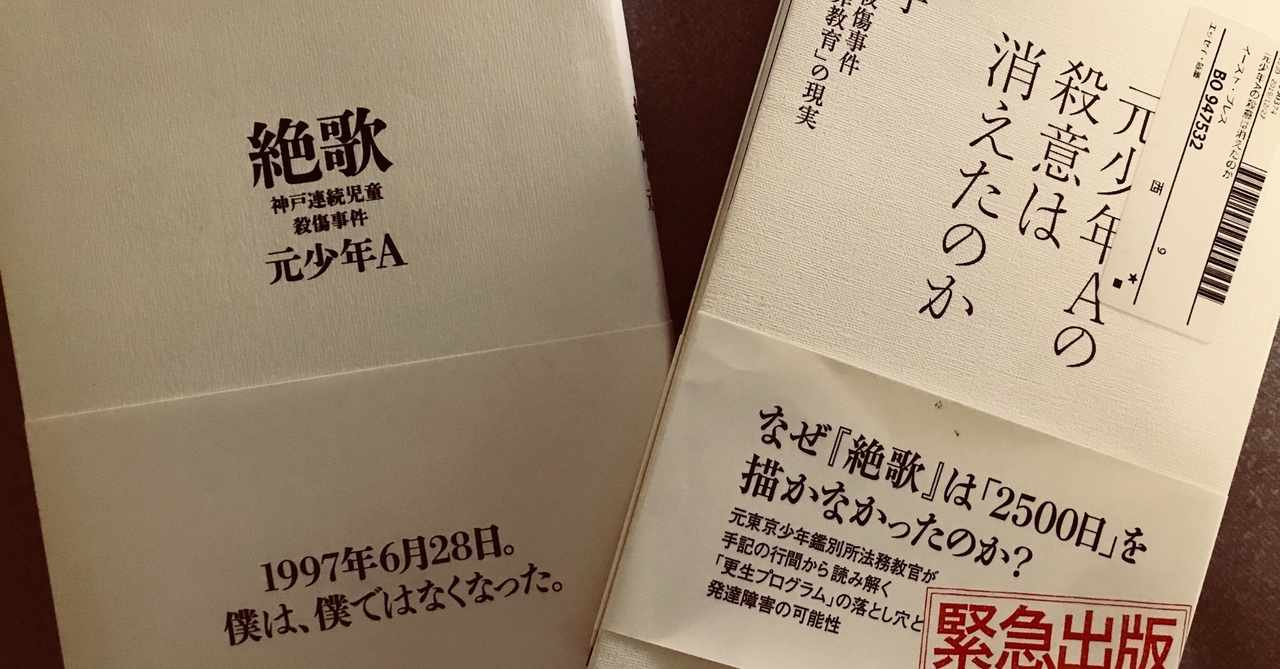 絶歌
神戸連続児童
殺傷事件
元少年A
1997年6月28日。
僕は、僕ではなくなった。
元少年Aの
殺意は
消えたのか
殺傷事件
教育」の現実
なぜ『絶歌』は「2500日」を
描かなかったのか?
元東京少年鑑別所法務教官が
手記の行間から読み解く
「更生プログラム」の落とし穴と
発達障害の可能性
緊急出版
イースト・プレス
BO 947532